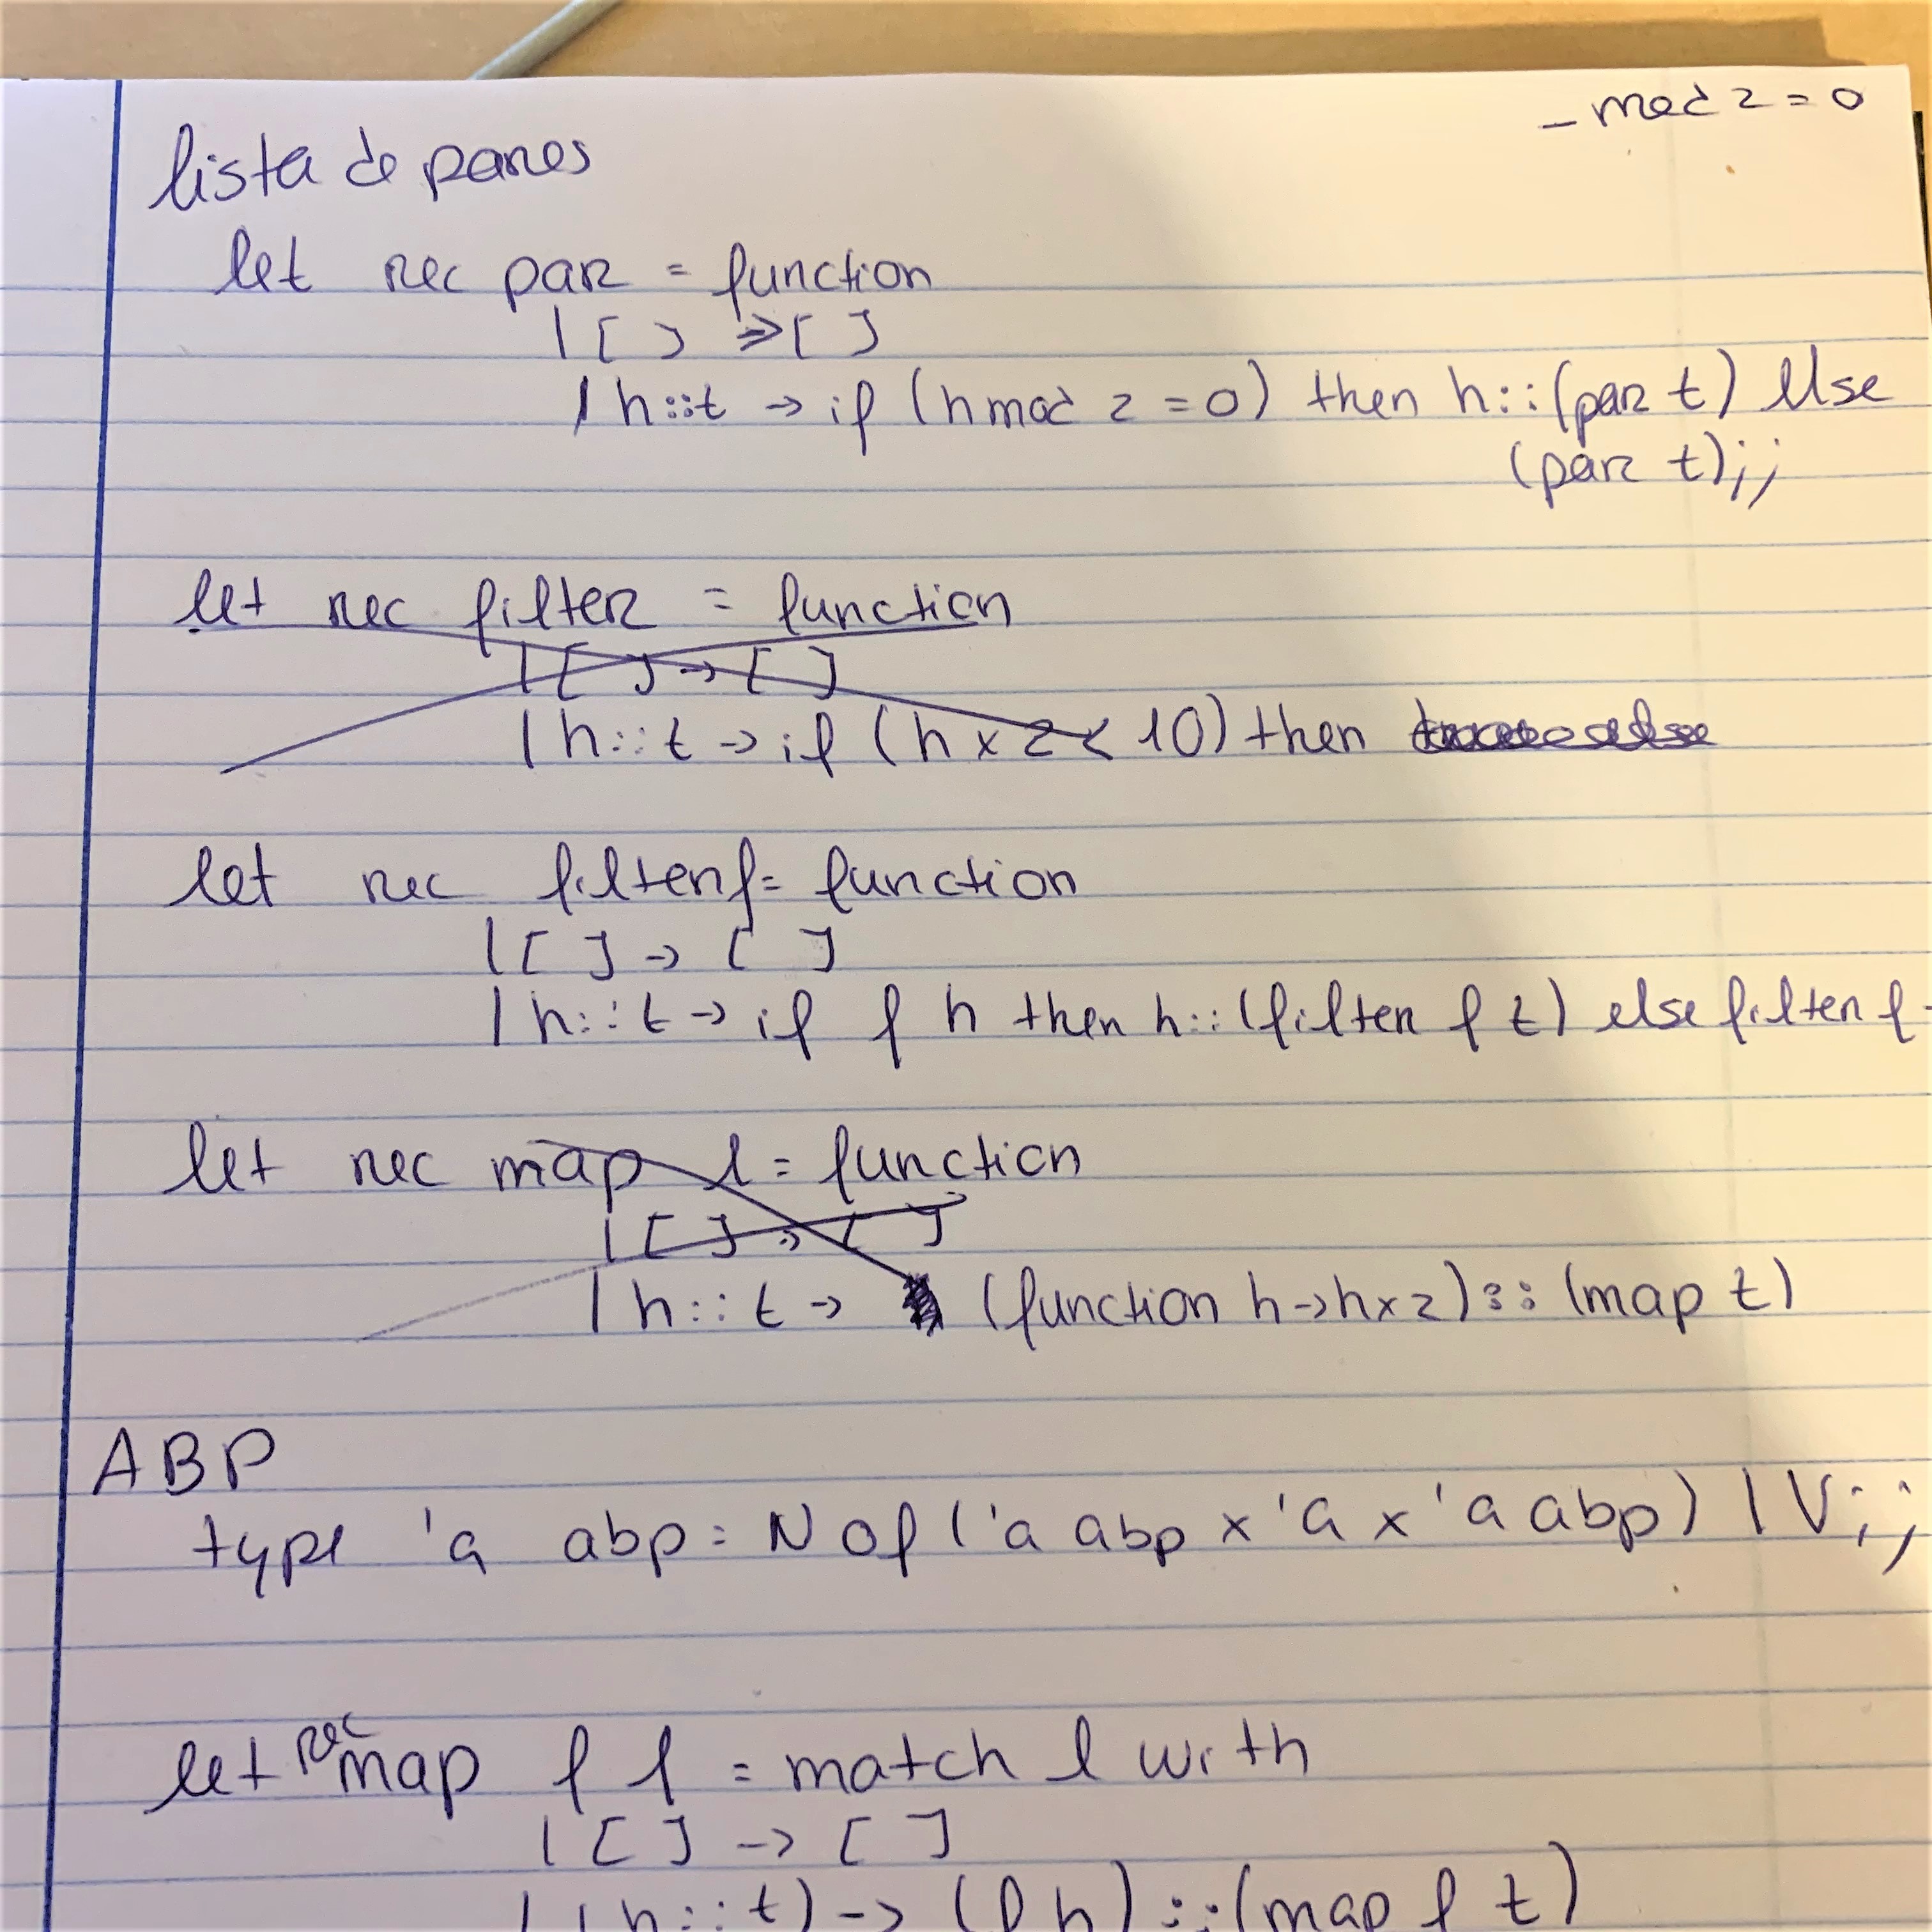 _ mod 2 = 0
lista de pares
let rec par = function
| [ ] → [ ]
| h::t → if (h mod 2 = 0) then h::(par t) else
(par t);;
let rec filter = function
| [ ] → [ ]
| h::t → if (h x 2 < 10) then
let rec filter f = function
| [ ] → [ ]
| h::t → if f h then h::(filter f t) else filter f
let rec map l = function
| [ ] → [ ]
| h::t → (function h → h x 2)::(map t)
ABP
type 'a abp = N of ('a abp x 'a x 'a abp) | V;;
let rec map f l = match l with
| [ ] → [ ]
| (h::t) → (f h)::(map f t)